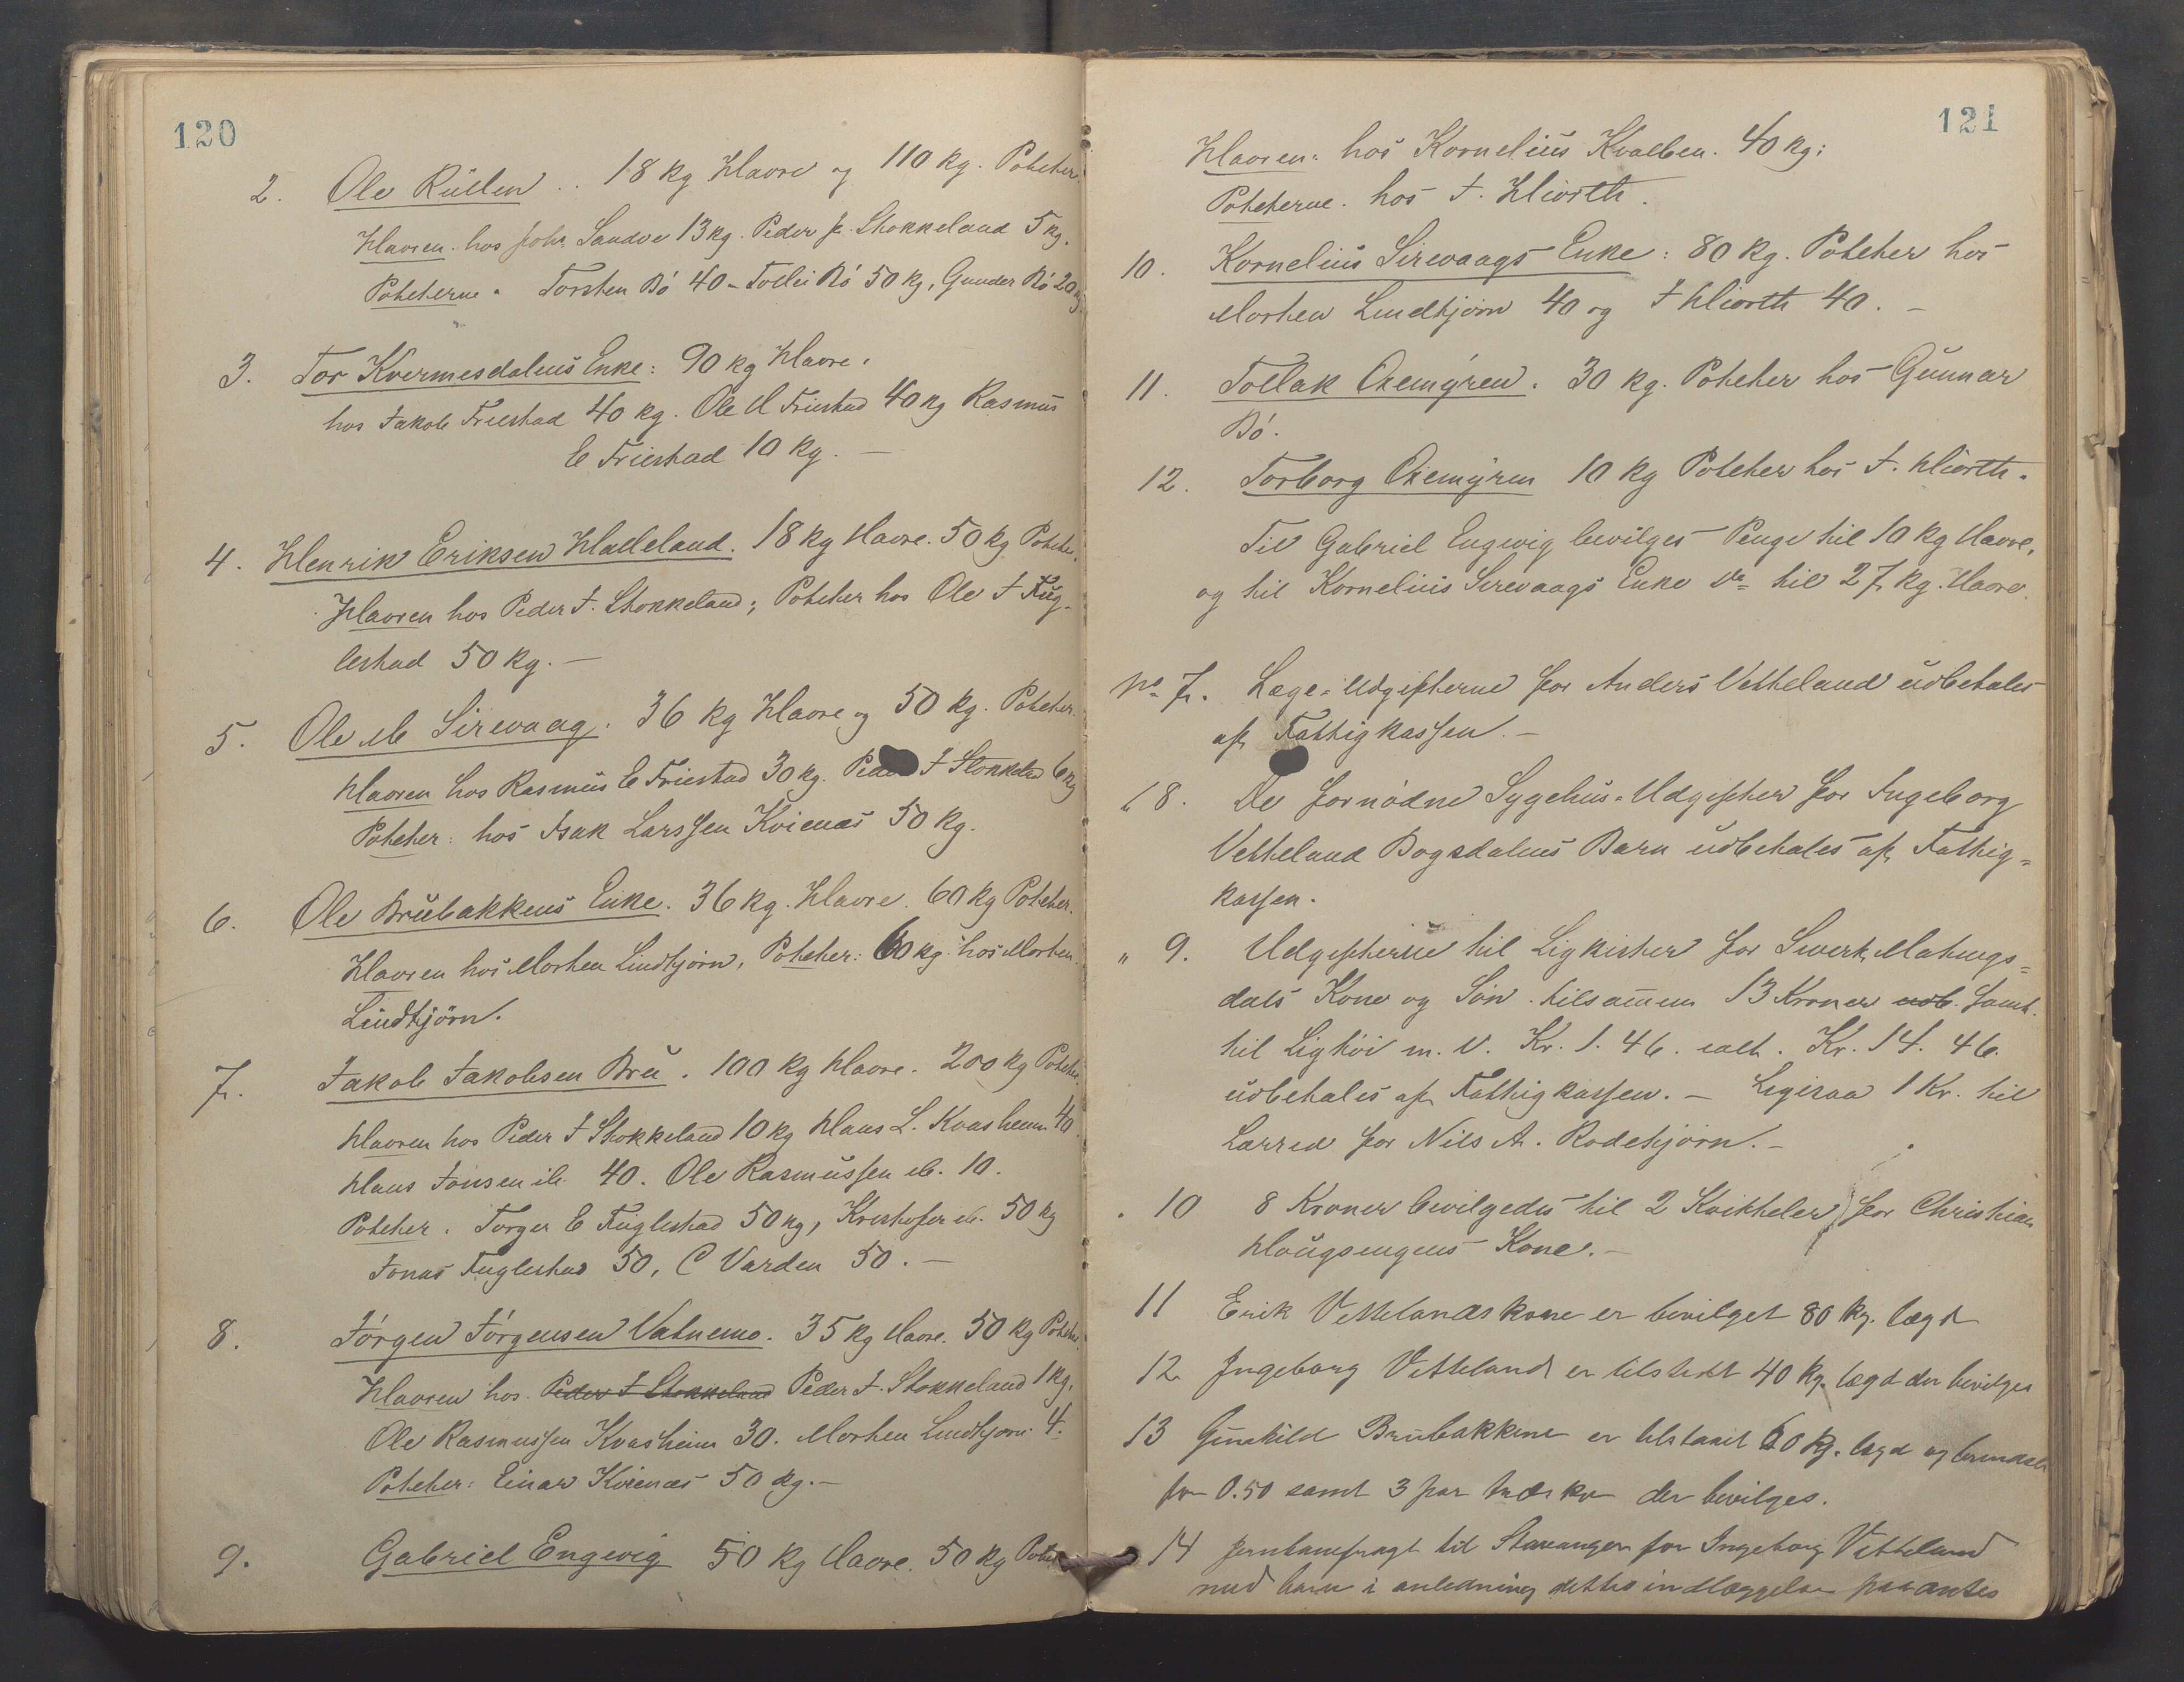 120
2. Ole Rüllen . . 18 kg Havre og 110 kg. Poteter.
Havren. hos John Sandve 13 kg. Peder J. Stokkeland 5 kg.
Poteterne. Torsten Bö 40 - Tollei Bö 50 kg, Gunder Bö 20 kg
3. Tor Kvermesdalens Enke: 90 kg Havre.
hos Jakob Friestad 40 kg. Ole M Friestad 40 kg Rasmus
E Friestad 10 kg. —
4. Henrik Eriksen Hadeland. 18 kg Havre. 50 kg Poteter.
Havren hos Peder J. Stokkeland; Poteter hos Ole J Fug-
lestad 50 kg. —
5. Ole M Sirevaag. 36 kg Havre og 50 kg. Poteter.
Havren hos Rasmus E Friestad 30 kg. Peder J Stokkeland 6 kg
Poteter: hos Isak Larssen Kvienæs 50 kg.
6. Ole Brubakkens Enke. 36 kg. Havre. 60 kg Poteter.
Havren hos Morten Lindtjörn, Poteter: 60 kg. hos Morten
Lindtjörn.
7. Jakob Jakobsen Bru. 100 kg Havre. 200 kg Poteter.
Havren hos Peder J Stokkeland 10 kg Hans L. Kvasheim 40
Hans Jonsen ib. 40. Ole Rasmussen ib. 10.
Poteter. Torger E Fuglestad 50 kg, Kristofer ib. 50 kg
Jonas Fuglestad 50, C Varden 50. —
8. Jörgen Jörgensen Vatnemo. 35 kg Havre. 50 kg Poteter.
Havren hos. Peder J Stokkeland Peder J. Stokkeland 1 kg.
Ole Rasmussen Kvasheim 30. Morten Lindtjorn 4.
Poteter: Einar Kvienæs 50 kg. —
9. Gabriel Engevig 50 kg Havre. 50 kg Poteter
121
Havren: hos Kornelius Kvalben. 40 kg:
Poteterne. hos J. Hiorth.
10. Kornelius Sirevaags Enke: 80 kg. Poteter hos
Morten Lindtjorn 40 og J Hiorth 40. —
11. Tollak Oxemyren. 30 kg. Poteter hos Gunnar
Bö.
12. Torborg Oxemyren 10 kg Poteter hos J. Hiorth.
Til Gabriel Engevig bevilges Penge til 10 kg Havre,
og til Kornelius Sirevaags Enke do til 27 kg. Havre.
No 7. Læge-Udgifterne for Anders Vetteland udbetales
af Fattigkassen. —
" 8. De fornödne Sygehus-Udgifter for Ingeborg
Vetteland Bogsdalens Barn udbetales af Fattig-
kassen.
" 9. Udgifterne til Ligkister for Sverk Matings-
dals Kone og Sön. tilsammen 13 Kroner udb. samt.
til Lighöi m. V. Kr. 1. 46. ialt. Kr. 14. 46.
udbetales af Fattigkassen. — Ligesaa 1 Kr. til
Lærred for Nils A. Rodetjörn. —
" 10 8 Kroner bevilgedes til 2 Kvitteler for Christian
Haugsengens Kone. —
11 Erik Vettelands kone er bevilget 80 kg. lægd
12 Ingeborg Vetteland er tilstedt 40 kg. lægd der bevilges
13 Gunhild Brubakkene er tilstaaet 60 kg. lægd og
for 0.50 samt 3 par træsko der bevilges.
14 Jernbanefragt til Stavanger for Ingeborg Vetteland
med barn i anledning dettes indlæggelse paa